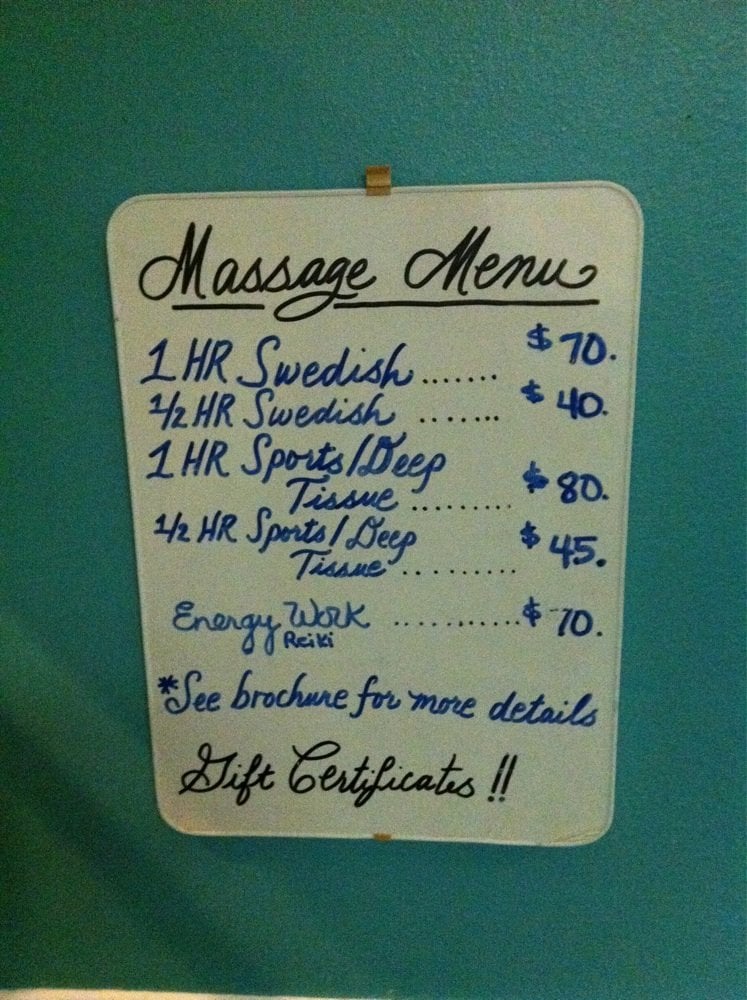 Massage Menu
1 HR Swedish ....... $ 70.
1/2 HR Swedish ....... $ 40.
1 HR Sports/Deep
Tissue .......... $ 80.
1/2 HR Sports/Deep
Tissue .......... $ 45.
Energy Work ............ $ 70.
Reiki
*See brochure for more details
Gift Certificates !!